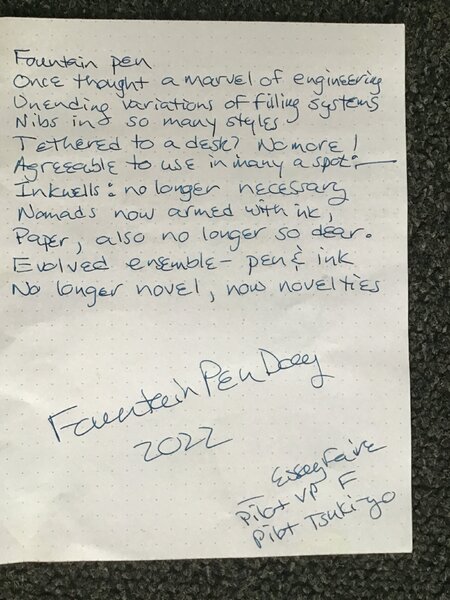 Fountain pen
Once thought a marvel of engineering
Unending variations of filling systems
Nibs in so many styles
Tethered to a desk? No more!
Agreeable to use in many a spot:—
Inkwells: no longer necessary
Nomads now armed with ink,
Paper, also no longer so dear.
Evolved ensemble- pen & ink
No longer novel, now novelties
Fountain Pen Day
2022
— EssayFaire
Pilot VP F
Pilot Tsuki-yo